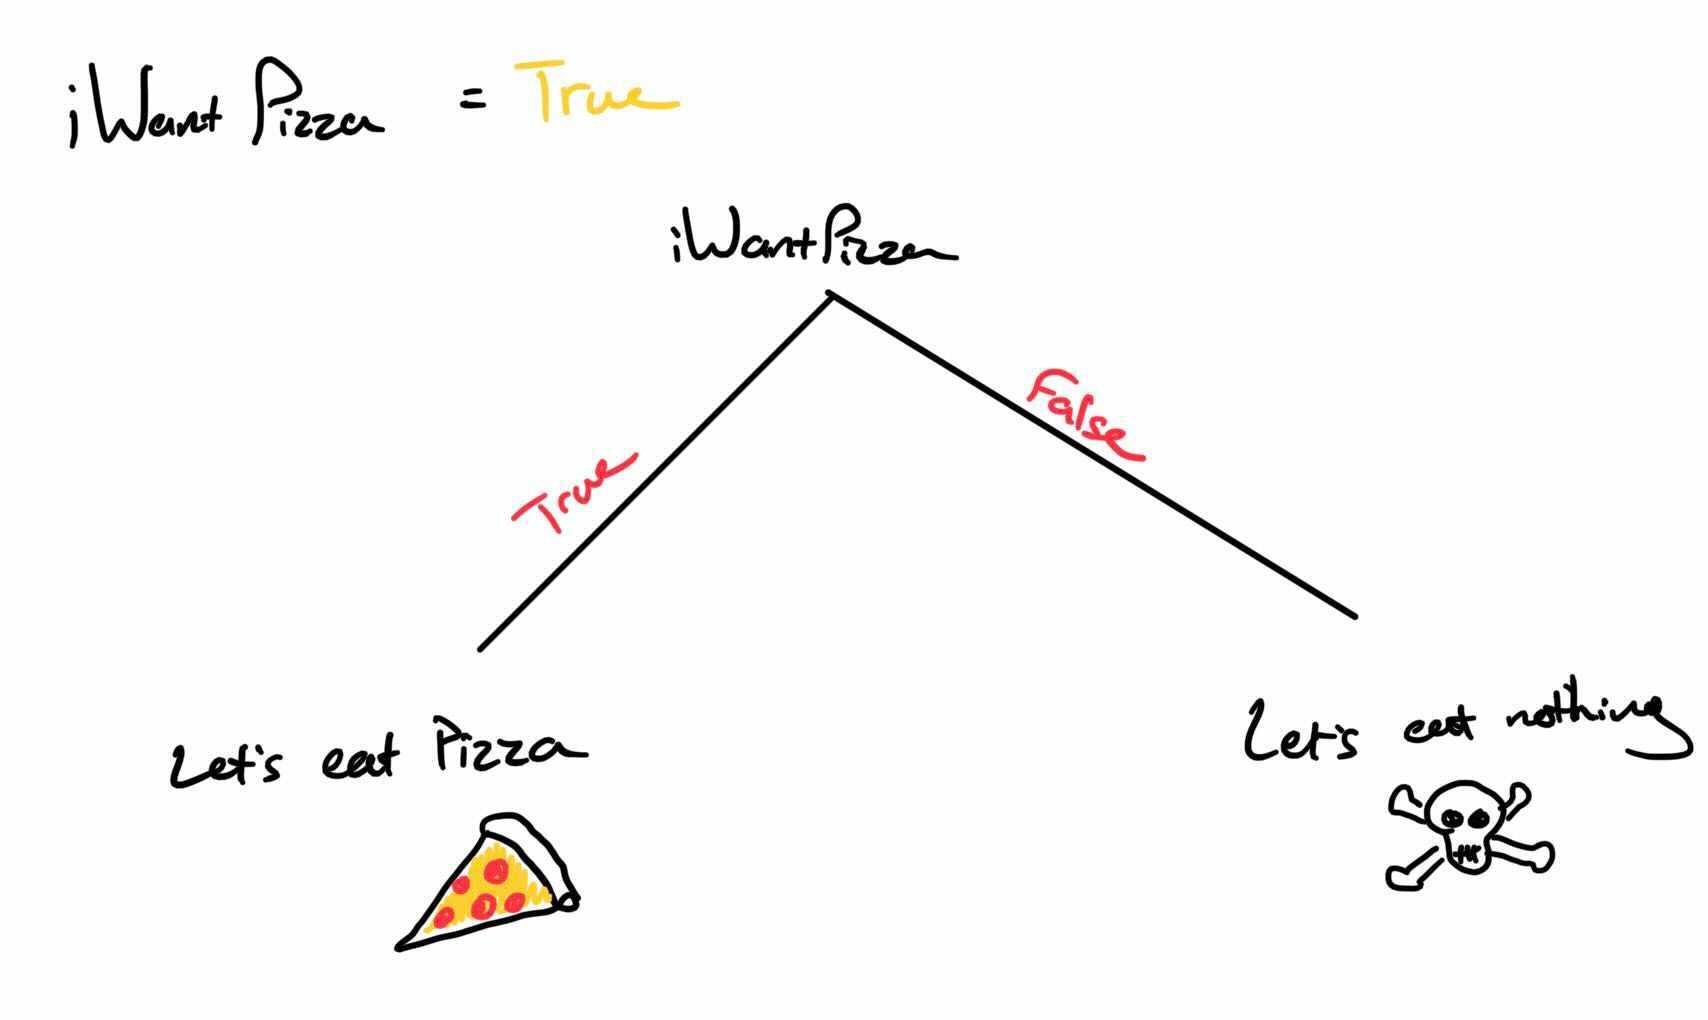 iWantPizza = True
iWantPizza
False
True
Let's eat Pizza
Let's eat nothing